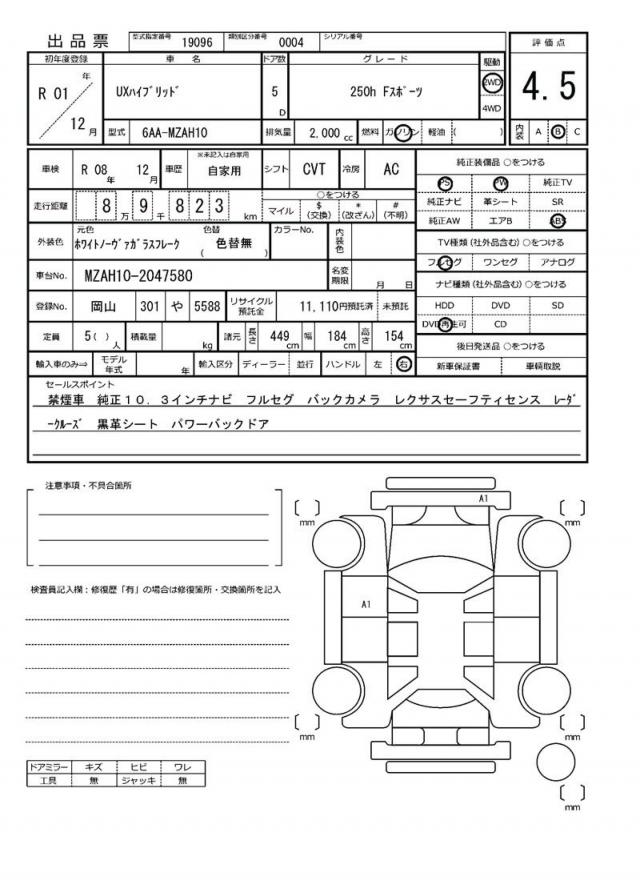 出品票 型式指定番号 19096 類別区分番号 0004 シリアル番号
初年度登録 車名 ドア数 グレード 駆動 評価点
R 01 年 12 月 UXハイブリッド 5 D 250h Fスポーツ 2WD 4WD 4.5
型式 6AA-MZAH10 排気量 2,000 cc 燃料 ガソリン 軽油 ( ) 内装 A B C
車検 R 08 年 12 月 車歴 ※未記入は自家用 自家用 シフト CVT 冷房 AC 純正装備品 ○をつける
PS PW 純正TV
走行距離 8 万 9 千 8 2 3 km ○をつける マイル $ (交換) * (改ざん) # (不明) 純正ナビ 革シート SR
純正AW エアB ABS
外装色 元色 ホワイトノーヴァガラスフレーク 色替 ( 色替無 ) カラーNo. 内装色 TV種類 (社外品含む) ○をつける
フルセグ ワンセグ アナログ
車台No. MZAH10-2047580 名変期限 月 日 ナビ種類 (社外品含む) ○をつける
登録No. 岡山 301 や 5588 リサイクル預託金 11,110円預託済 未預託 HDD DVD SD
DVD再生可 CD
定員 5( ) 人 積載量 kg 諸元 長さ 449 cm 幅 184 cm 高さ 154 cm 後日発送品 ○をつける
輸入車のみ⇒ モデル年式 年 輸入区分 ディーラー 並行 ハンドル 左 右 新車保証書 車輌取説
セールスポイント
禁煙車 純正10.3インチナビ フルセグ バックカメラ レクサスセーフティセンス レーダ
ークルーズ 黒革シート パワーバックドア
注意事項・不具合箇所
A1
mm mm
検査員記入欄：修復歴「有」の場合は修復箇所・交換箇所を記入
A1
mm mm
ドアミラー キズ ヒビ ワレ
工具 無 ジャッキ 無
mm